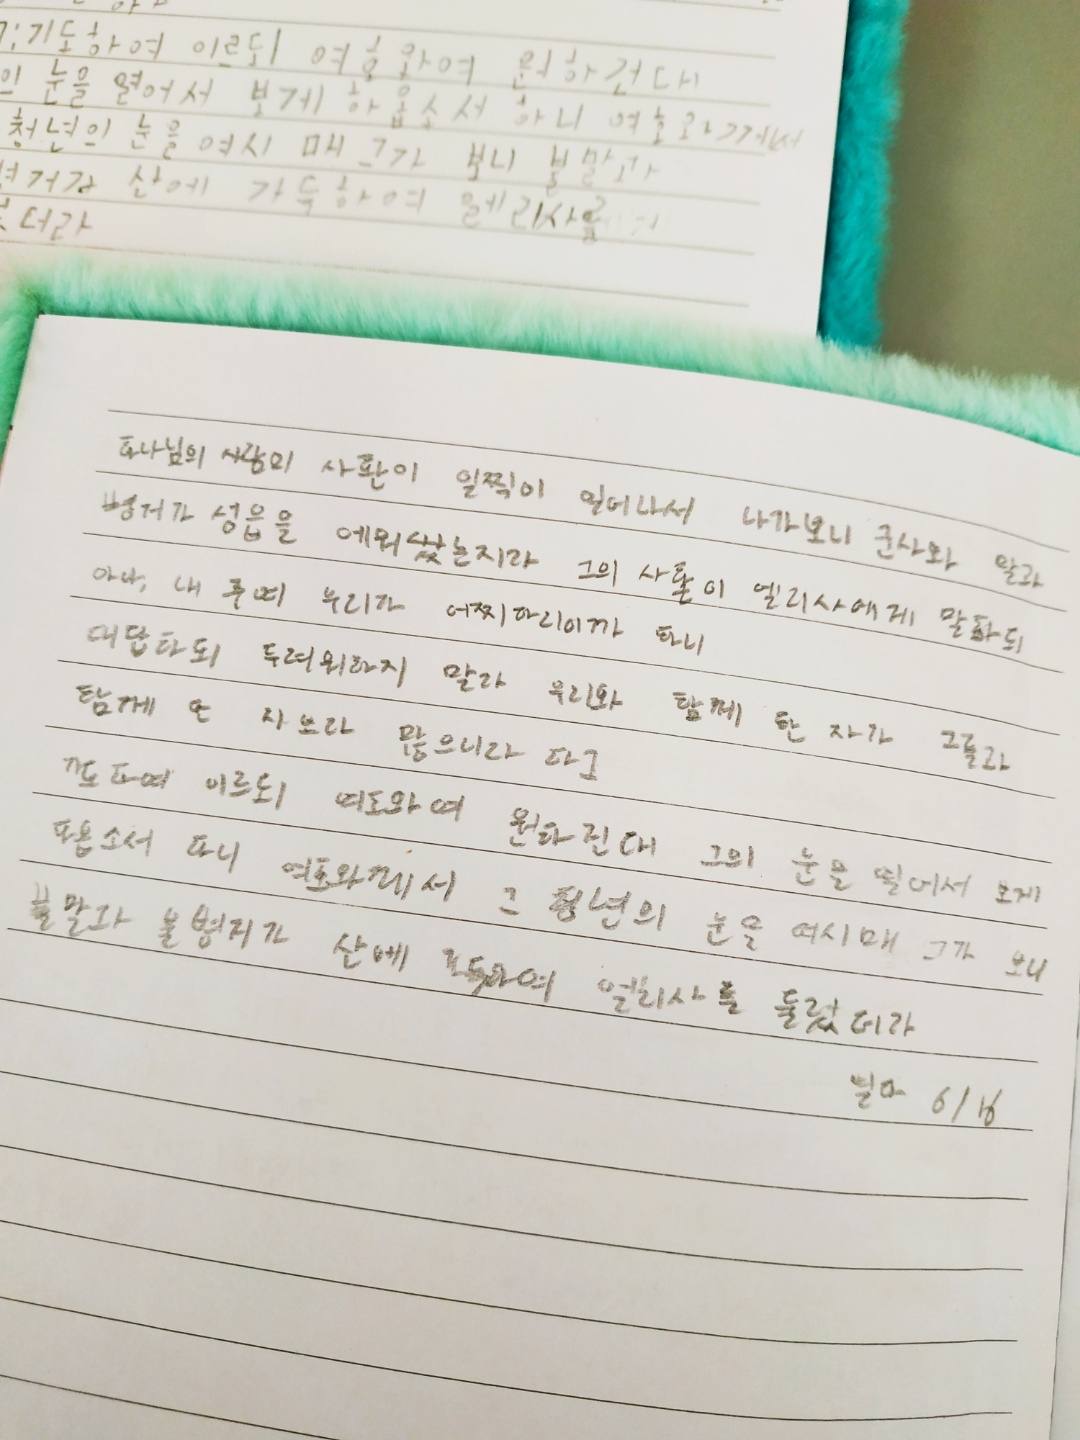 기도하여 이르되 여호와여 원하건대
의 눈을 열어서 보게 하옵소서 하니 여호와께서
청년의 눈을 여시매 그가 보니 불말과
산에 가득하여 엘리사를
더라
하나님의 사람의 사환이 일찍이 일어나서 나가보니 군사와 말과
병거가 성읍을 에워쌌는지라 그의 사환이 엘리사에게 말하되
아아, 내 주여 우리가 어찌하리이까 하니
대답하되 두려워하지 말라 우리와 함께 한 자가 그들과
함께 한 자보다 많으니라 하고
기도하여 이르되 여호와여 원하건대 그의 눈을 열어서 보게
하옵소서 하니 여호와께서 그 청년의 눈을 여시매 그가 보니
불말과 불병거가 산에 가득하여 엘리사를 둘렀더라
6/16